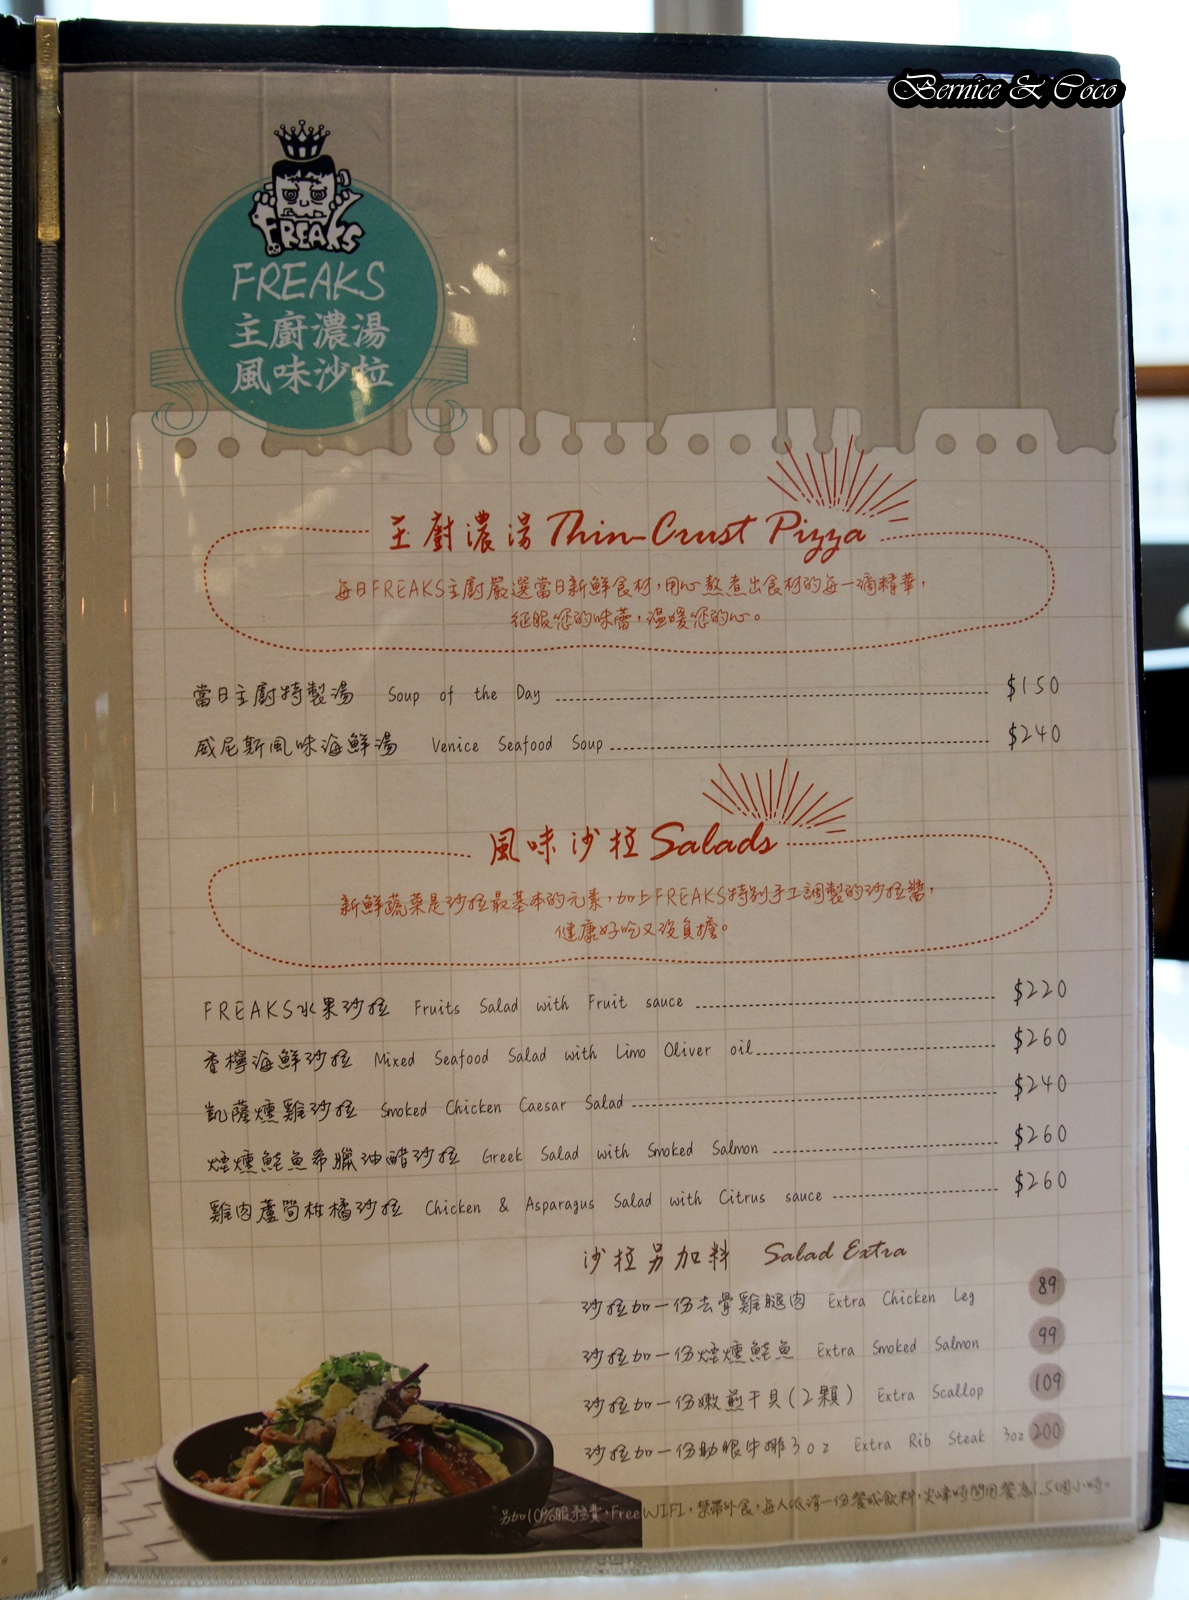 Bernice & Coco
FREAKS
FREAKS
主廚濃湯
風味沙拉
主廚濃湯 Thin-Crust Pizza
每日FREAKS主廚嚴選當日新鮮食材，用心熬煮出食材的每一滴精華，
征服您的味蕾，溫暖您的心。
當日主廚特製湯 Soup of the Day $150
威尼斯風味海鮮湯 Venice Seafood Soup $240
風味沙拉 Salads
新鮮蔬菜是沙拉最基本的元素，加上FREAKS特別手工調製的沙拉醬，
健康好吃又沒負擔。
FREAKS水果沙拉 Fruits Salad with Fruit sauce $220
香檸海鮮沙拉 Mixed Seafood Salad with Limo Oliver oil $260
凱薩燻雞沙拉 Smoked Chicken Caesar Salad $240
煙燻鮭魚希臘油醋沙拉 Greek Salad with Smoked Salmon $260
雞肉蘆筍柑橘沙拉 Chicken & Asparagus Salad with Citrus sauce $260
沙拉另加料 Salad Extra
沙拉加一份去骨雞腿肉 Extra Chicken Leg 89
沙拉加一份煙燻鮭魚 Extra Smoked Salmon 99
沙拉加一份嫩煎干貝(2顆) Extra Scallop 109
沙拉加一份肋眼牛排3oz Extra Rib Steak 3oz 200
另加10%服務費，Free WIFI，禁帶外食，每人低消一份餐或飲料，尖峰時間用餐為1.5個小時。